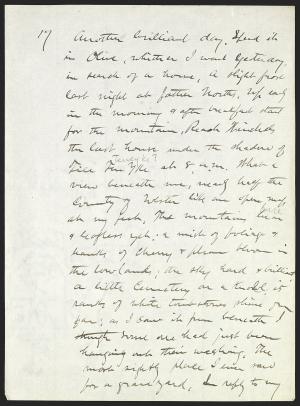 17/ Another brilliant day. Spend it
in Olive, whither I went yesterday
in search of a house, A slight frost
last night at Father North's, Up early
in the morning & after breakfast start
for the mountain, Reach
the last house under the shadow of
Tice Ten Eyck?
at 8 a.m. What a
view beneath me, nearly half the
County of Ulster like an open map
at my feet, The mountain bare
& leafless yet: a mist of foliage &
banks of cherry & plum bloom in
the low lands; the sky hard & brilliant
a little Cemetery on a knoll, its
ranks of white tombstones shine from
far; as I saw it from beneath I
thought some one had just been
hanging out their washing, The
most sightly place I ever saw
for a graveyard, In reply to my